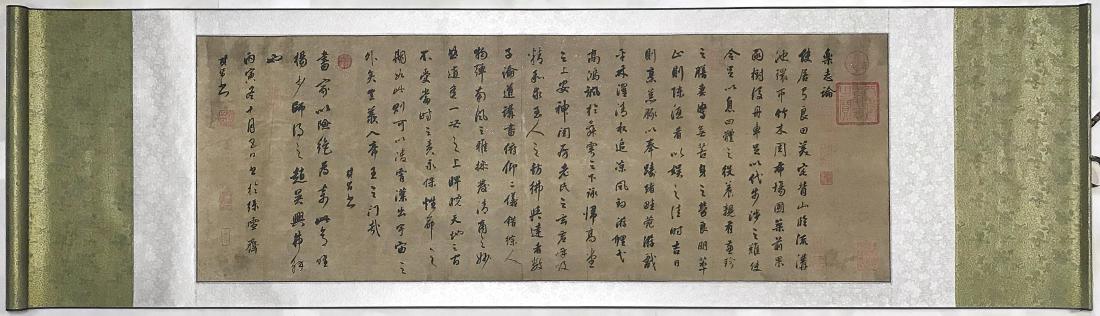 樂志論
使居有良田美宅背山臨流溝
池環帀竹木周布場圃築前果
園樹後舟車足以代步涉之難使
令足以息四體之役養親有兼珍
之膳妻孥無苦身之勞良朋萃
止則陳酒肴以娛之佳時吉日
則烹羔豚以奉躊躇畦苑遊戲
平林濯清水追涼風釣游鯉弋
高鴻諷於舞雩之下詠歸高堂
之上安神閨房老氏之玄虛呼吸
精和求至人之彷彿與達者數
子論道講書俯仰二儀錯綜人
物彈南風之雅操發清商之妙
逍遙一世之上睥睨天地之間
不受當時之責永保性命之
期如此則可以凌霄漢出宇宙之
外矣豈羨入帝王之門哉
其昌書
書家以險絕為奇此竅惟
楊少師得之趙吳興弗解
也
丙寅年十月五日書於雪齋
其昌書